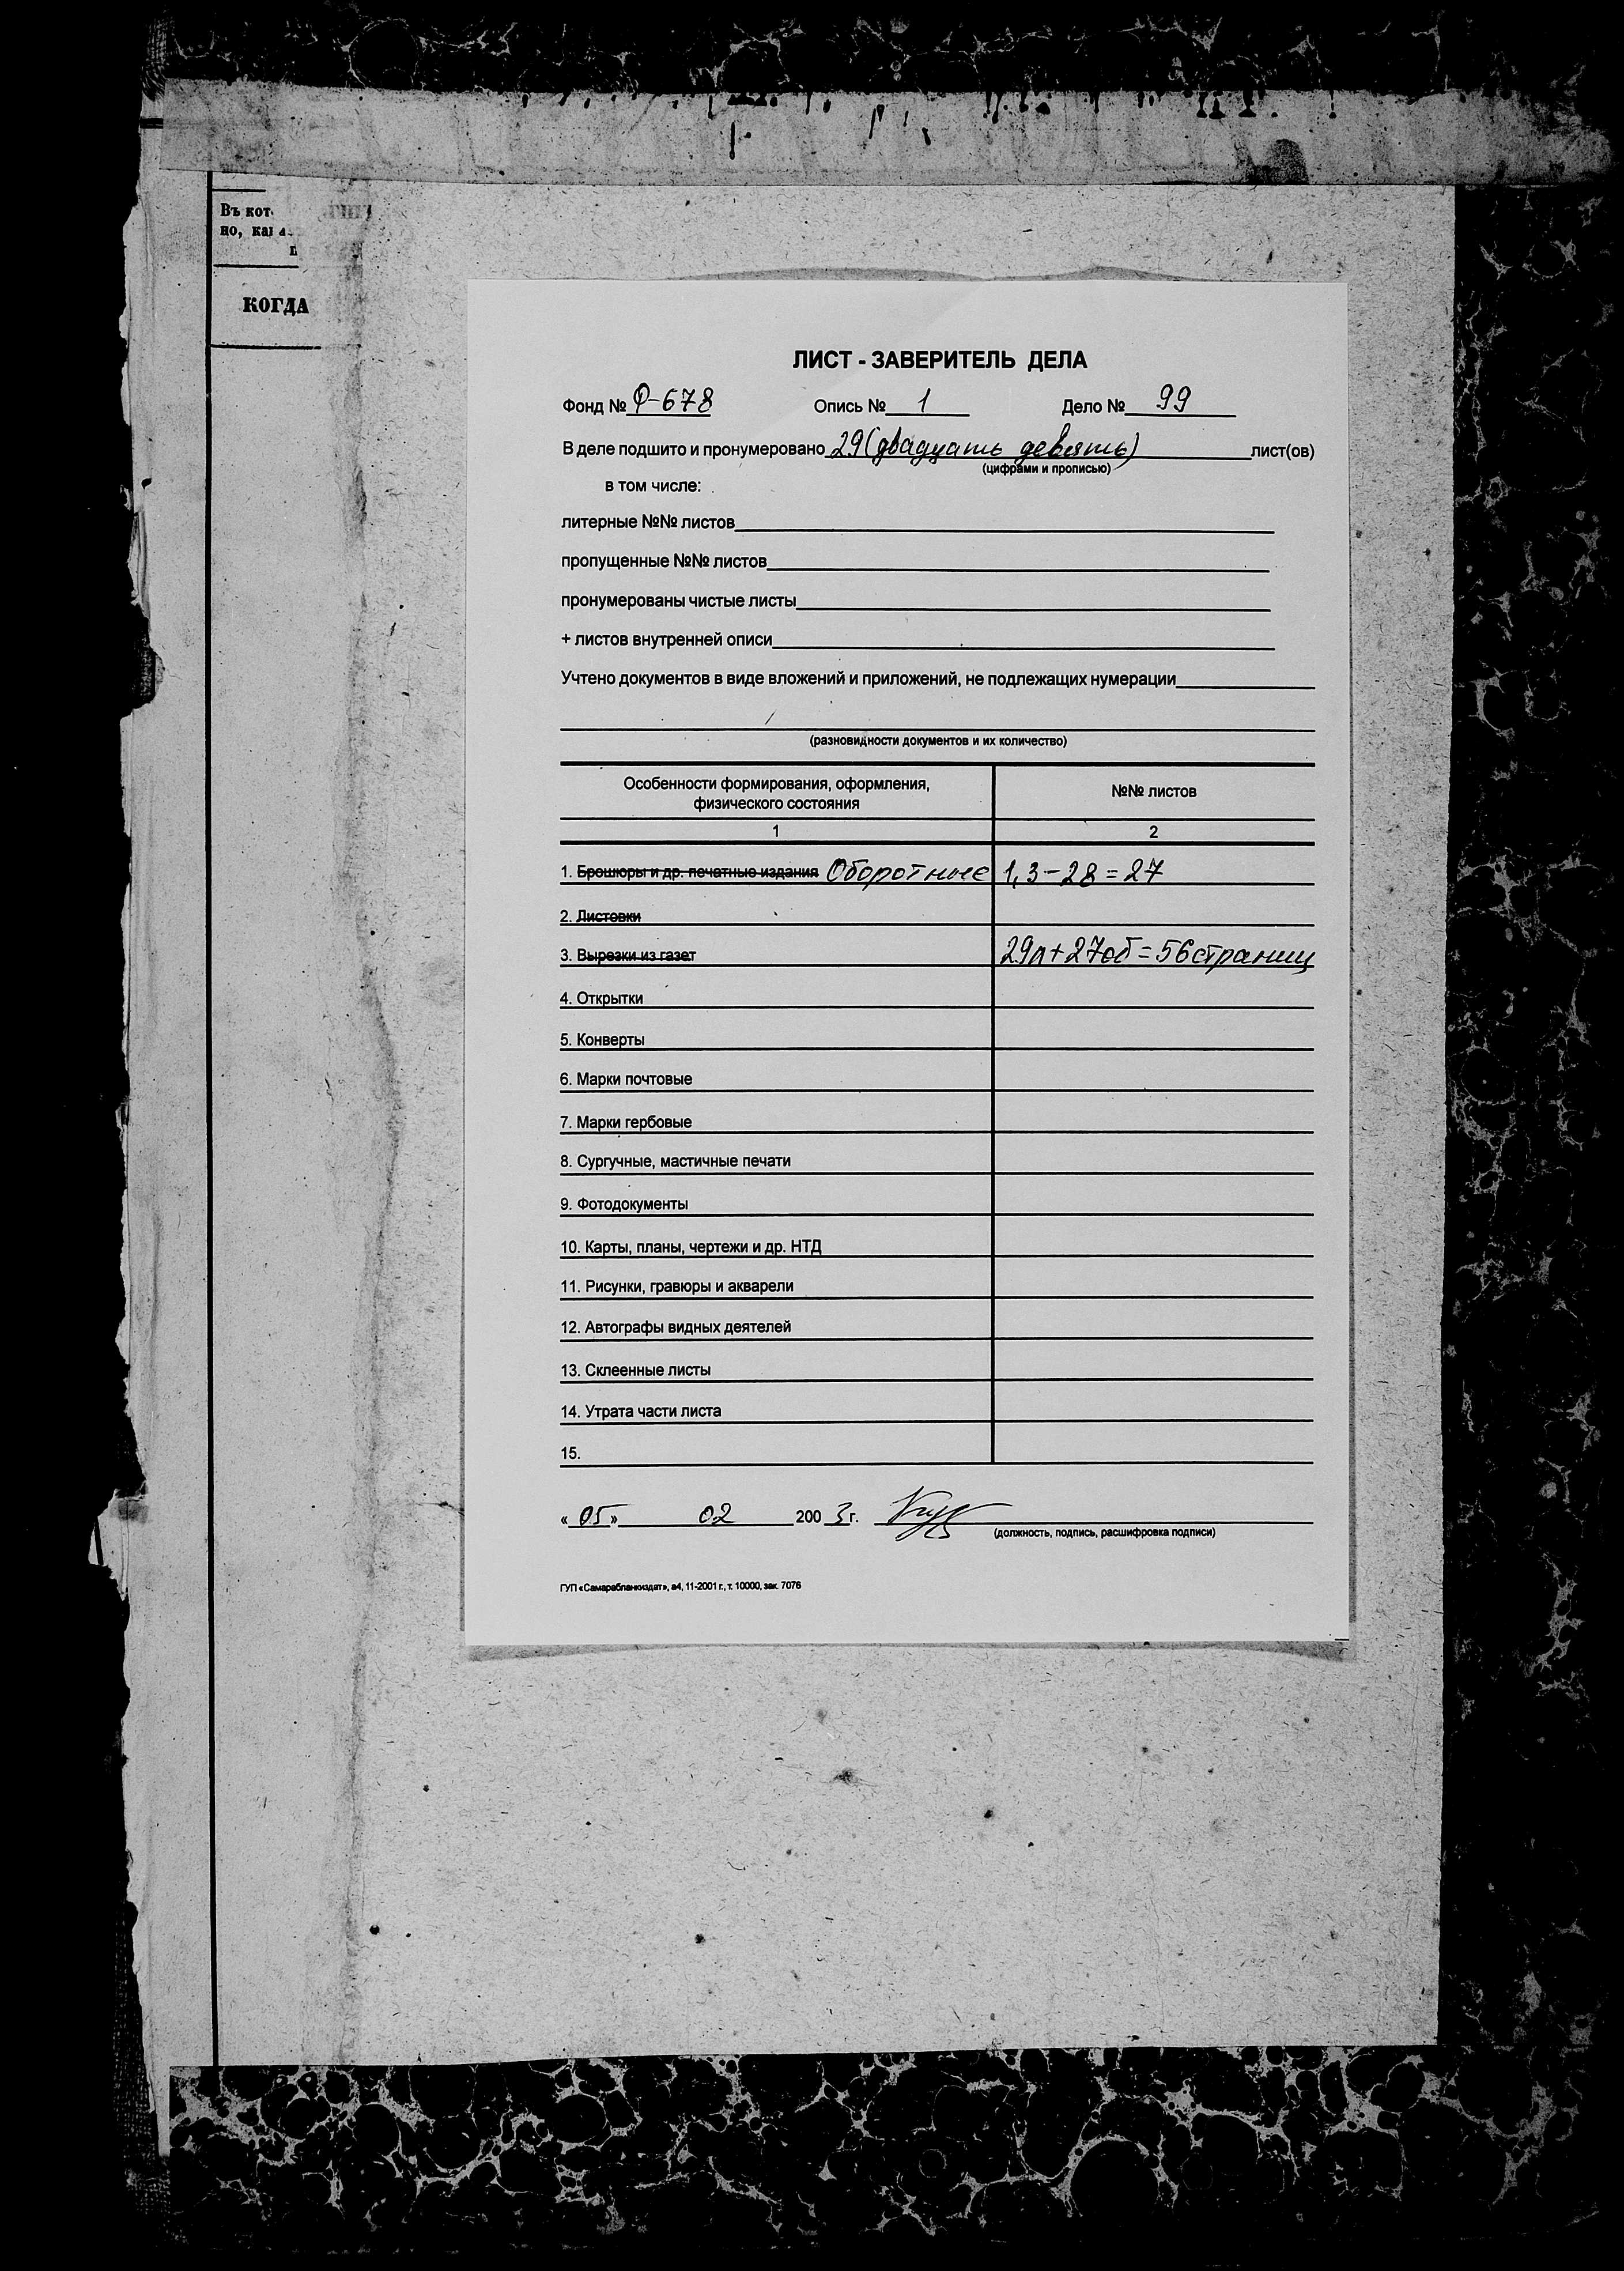 Въ кот
но, как
КОГДА
ЛИСТ - ЗАВЕРИТЕЛЬ ДЕЛА
Фонд № Ф-678 Опись № 1 Дело № 99
В деле подшито и пронумеровано 29 (двадцать девять) лист(ов)
(цифрами и прописью)
в том числе:
литерные №№ листов
пропущенные №№ листов
пронумерованы чистые листы
+ листов внутренней описи
Учтено документов в виде вложений и приложений, не подлежащих нумерации
(разновидности документов и их количество)
Особенности формирования, оформления, №№ листов
физического состояния
1 2
1. Брошюры и др. печатные издания Оборотные 1, 3-28 = 27
2. Листовки
3. Вырезки из газет 29л + 27об = 56 страниц
4. Открытки
5. Конверты
6. Марки почтовые
7. Марки гербовые
8. Сургучные, мастичные печати
9. Фотодокументы
10. Карты, планы, чертежи и др. НТД
11. Рисунки, гравюры и акварели
12. Автографы видных деятелей
13. Склеенные листы
14. Утрата части листа
15.
« 05 » 02 200 3 г.
(должность, подпись, расшифровка подписи)
ГУП «Самарабланкиздат», а4, 11-2001 г., т. 10000, зак. 7076